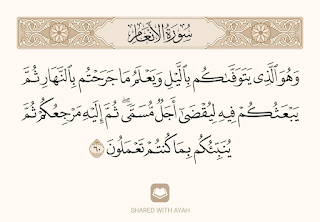 سُورَةُ الأَنْعَام
وَهُوَ ٱلَّذِى يَتَوَفَّىٰكُم بِٱلَّيْلِ وَيَعْلَمُ مَا جَرَحْتُم بِٱلنَّهَارِ ثُمَّ
يَبْعَثُكُمْ فِيهِ لِيُقْضَىٰٓ أَجَلٌ مُّسَمًّى ۖ ثُمَّ إِلَيْهِ مَرْجِعُكُمْ ثُمَّ
يُنَبِّئُكُم بِمَا كُنتُمْ تَعْمَلُونَ ٦٠
SHARED WITH AYAH